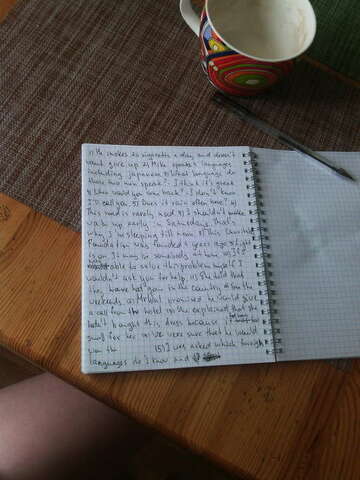 1) He smokes 20 cigarettes a day and doesn't
want give up 2) Mike speaks 4 languages
including Japanese 3) What language do
those two men speak? - I think it's greek
4) When would you come back? - I don't know
I'll call you 5) Does it rain often here? 6)
This road is rarely used 7) I shouldn't
wake up early in Saturdays. That's
why I'm sleeping till noon 8) This charitable
foundation was founded 5 years ago 9) Light
is on. It may be somebody at home 10) If I
able to solve this problem myself I
wouldn't ask you for help 11) She told that
they have gone in the country for the
weekends 12) promised he would give
a call from the hotel 13) She explained that she
hadn't bought this dress because it
small for her 14) We were sure that he would
win the 15) I was asked which foreign
languages do I know and